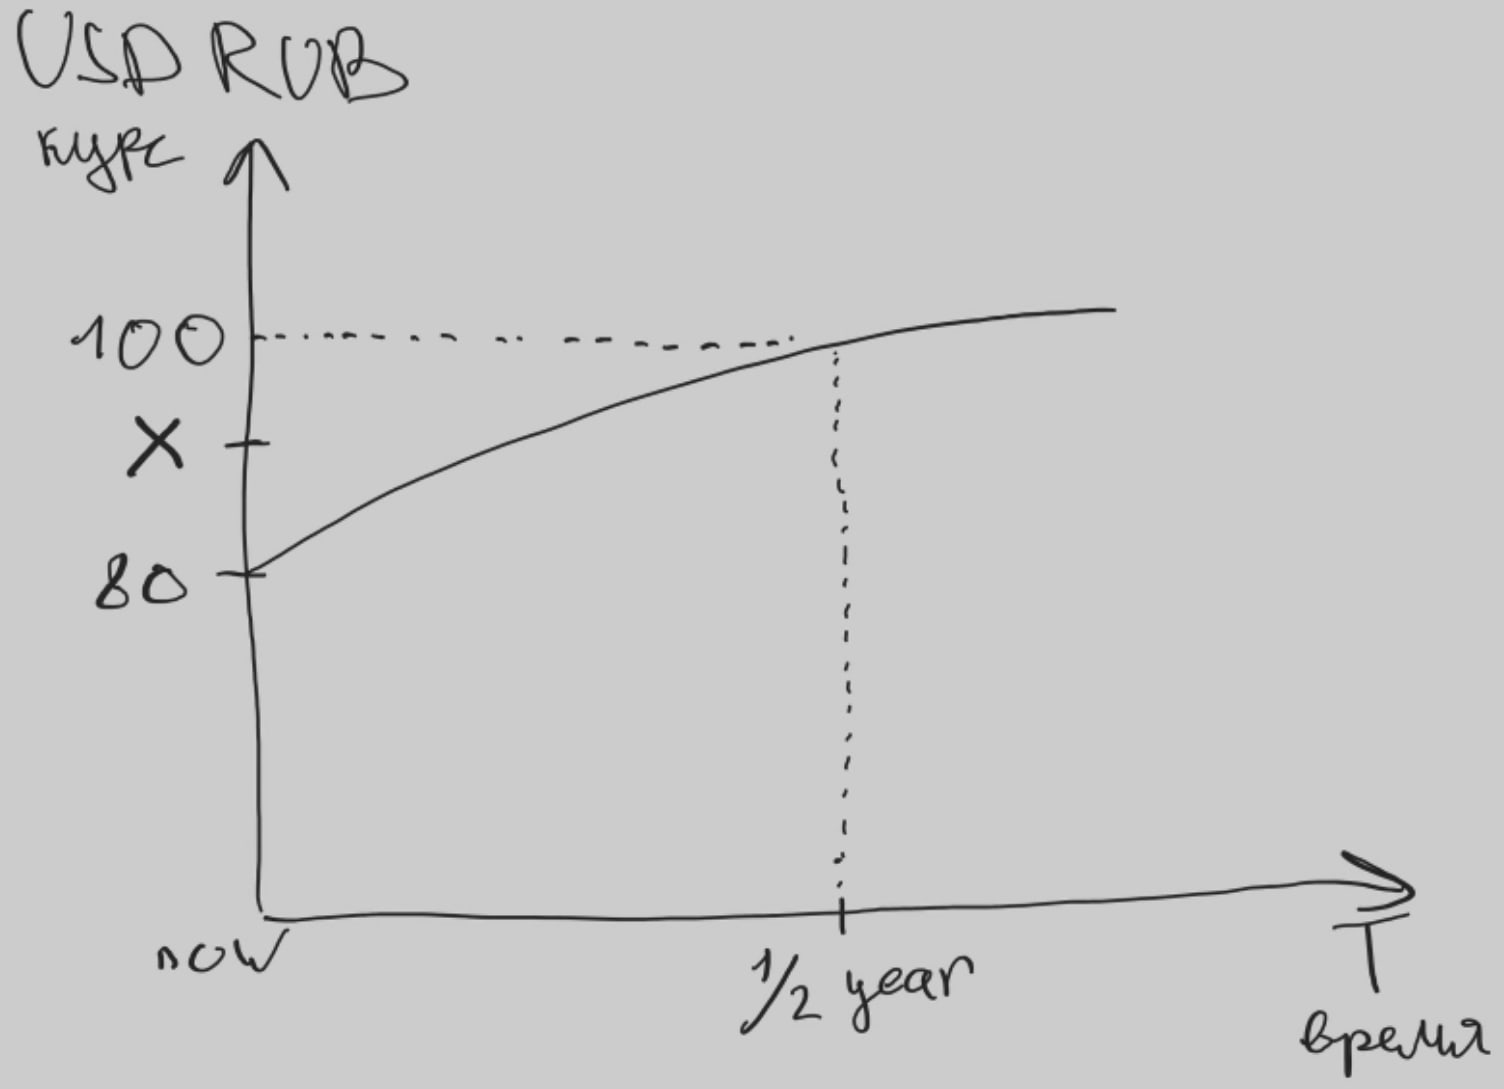 USD RUB
курс
100
X
80
now
1/2 year
T
время